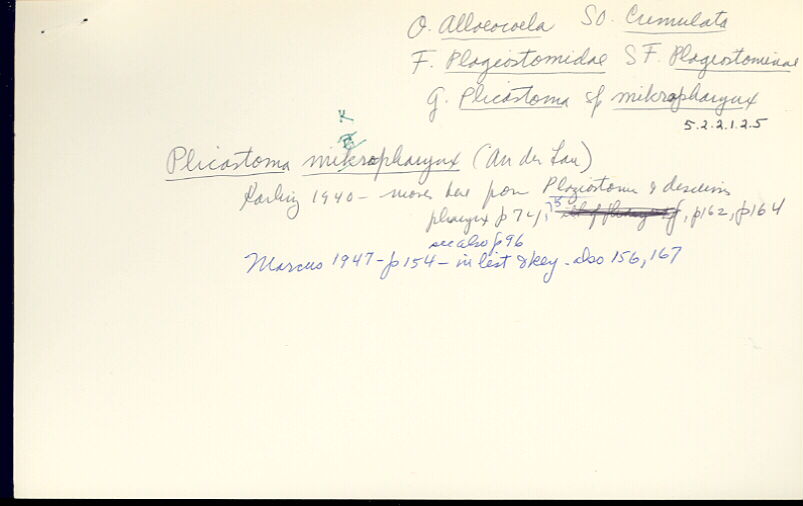 O. Alloeocoela SO. Cumulata
F. Plagiostomidae SF. Plagiostominae
G. Plicastoma sp mikropharynx
5.2.2.1.2.5
K
Plicastoma mikropharynx (An der Lan)
Karling 1940 - moves here from Plagiostomum & descrins
pharynx p 74, 75, p162, p164
see also p 96
Marcus 1947 - p154 - in list & key - also 156, 167